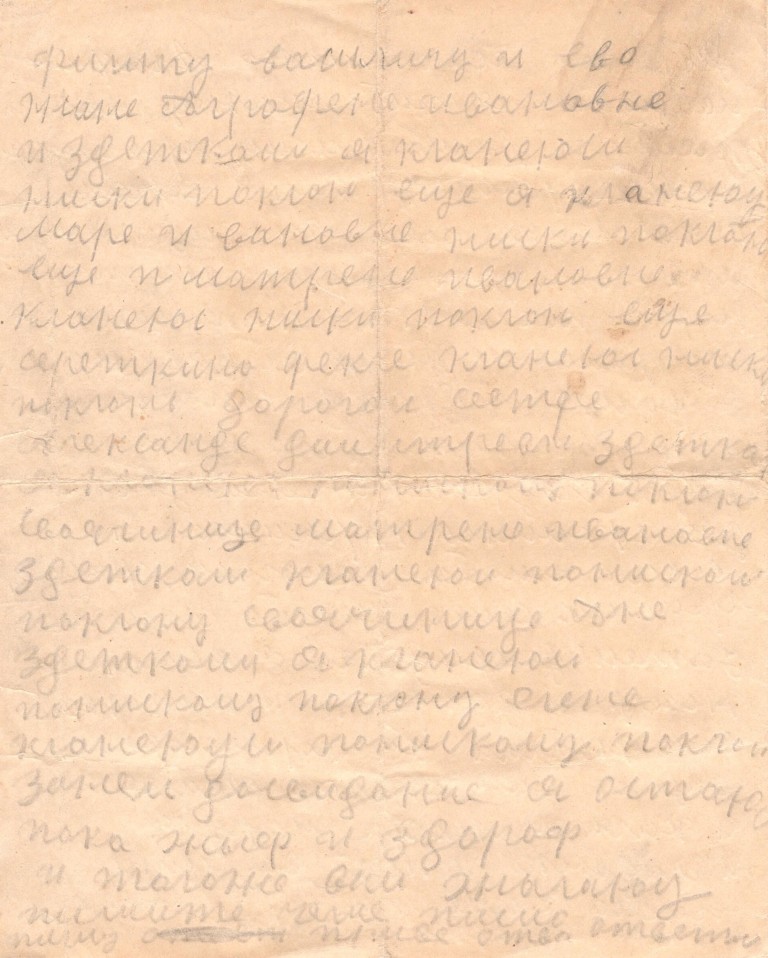 филипу василичу и ево
жане Аграфене ивановне
и здеткоми я кланеюси
ниски поклон еще я кланеюу
маре ивановне ниски поклон
еще и матрене ивановне
кланеюс ниски поклон еще
фекле кланеюс ниски
поклон дорогой сестре
Александе здетка
поклон
своячинице матрене ивановне
здеткоми кланеюси пониском
поклону своячинице Анне
здеткоми я кланеюси
понискому поклону
кланеюуси понискому поклон
занем досвидание я остаюс
пока жыф и здороф
и тогоже вам жылаюу
пишите чаще писмо
пишу ответ